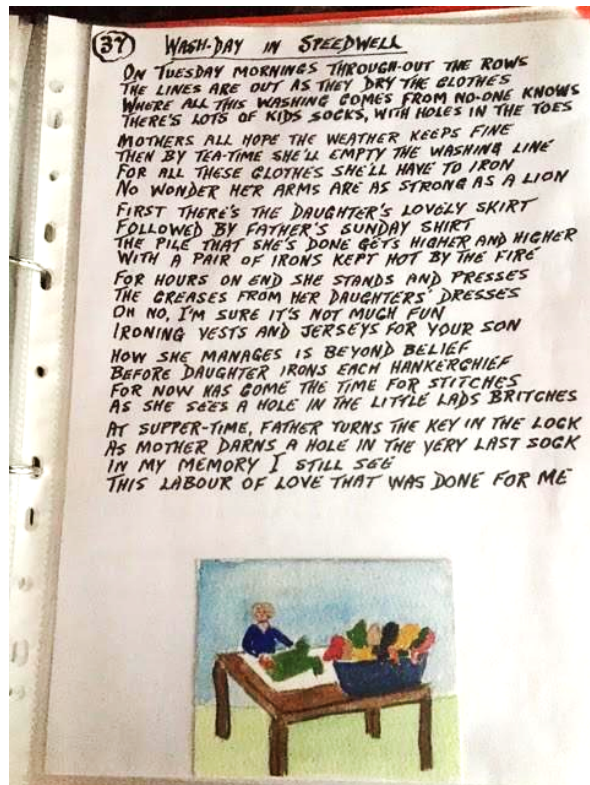 37 WASH-DAY IN SPEEDWELL
ON TUESDAY MORNINGS THROUGH-OUT THE ROWS
THE LINES ARE OUT AS THEY DRY THE CLOTHES
WHERE ALL THIS WASHING COMES FROM NO-ONE KNOWS
THERE'S LOTS OF KIDS SOCKS, WITH HOLES IN THE TOES
MOTHERS ALL HOPE THE WEATHER KEEPS FINE
THEN BY TEA-TIME SHE'LL EMPTY THE WASHING LINE
FOR ALL THESE CLOTHES SHE'LL HAVE TO IRON
NO WONDER HER ARMS ARE AS STRONG AS A LION
FIRST THERE'S THE DAUGHTER'S LOVELY SKIRT
FOLLOWED BY FATHER'S SUNDAY SHIRT
THE PILE THAT SHE'S DONE GETS HIGHER AND HIGHER
WITH A PAIR OF IRONS KEPT HOT BY THE FIRE
FOR HOURS ON END SHE STANDS AND PRESSES
THE CREASES FROM HER DAUGHTERS' DRESSES
OH NO, I'M SURE IT'S NOT MUCH FUN
IRONING VESTS AND JERSEYS FOR YOUR SON
HOW SHE MANAGES IS BEYOND BELIEF
BEFORE DAUGHTER IRONS EACH HANKERCHIEF
FOR NOW HAS COME THE TIME FOR STITCHES
AS SHE SEES A HOLE IN THE LITTLE LADS BRITCHES
AT SUPPER-TIME, FATHER TURNS THE KEY IN THE LOCK
AS MOTHER DARNS A HOLE IN THE VERY LAST SOCK
IN MY MEMORY I STILL SEE
THIS LABOUR OF LOVE THAT WAS DONE FOR ME